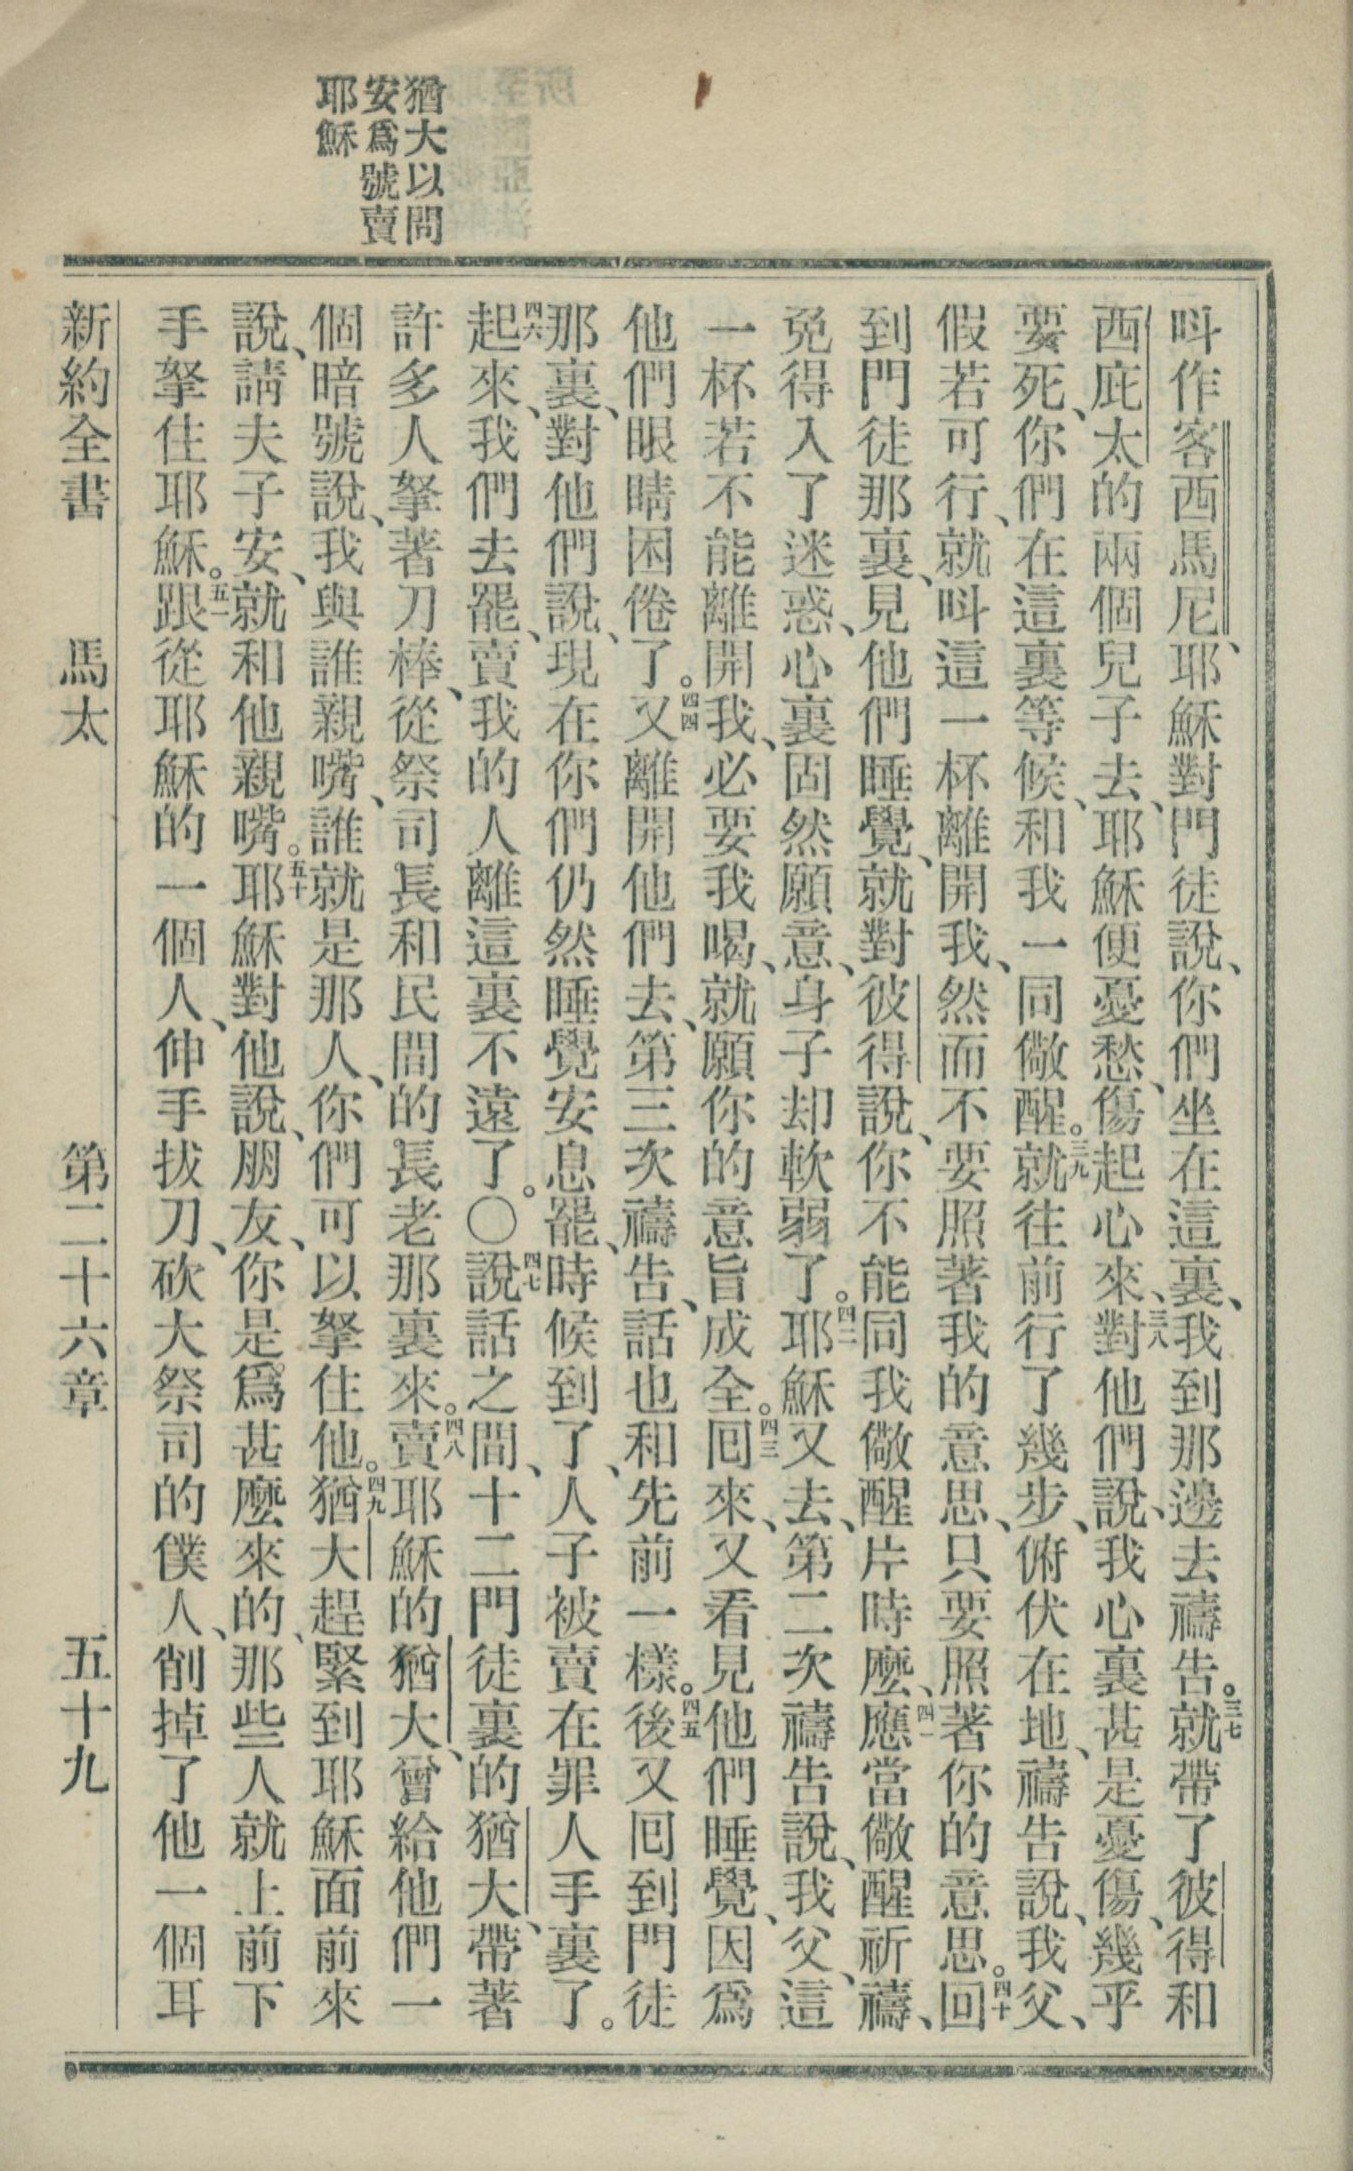 猶大以問
安爲號賣
耶穌
呌作客西馬尼、耶穌對門徒說、你們坐在這裏、我到那邊去禱告。三七就帶了彼得和
西庇太的兩個兒子去、耶穌便憂愁、傷起心來、三八對他們說、我心裏甚是憂傷、幾乎
要死、你們在這裏等候、和我一同儆醒。三九就往前行了幾步、俯伏在地、禱告說、我父、
假若可行、就呌這一杯離開我、然而不要照著我的意思、只要照著你的意思。四十回
到門徒那裏、見他們睡覺、就對彼得說、你不能同我儆醒片時麽、四一應當儆醒祈禱、
免得入了迷惑、心裏固然願意、身子却軟弱了。四二耶穌又去、第二次禱告說、我父、這
一杯若不能離開我、必要我喝、就願你的意旨成全。四三囘來、又看見他們睡覺、因爲
他們眼睛困倦了。四四又離開他們去、第三次禱告、話也和先前一樣。四五後又囘到門徒
那裏、對他們說、現在你們仍然睡覺安息罷、時候到了、人子被賣在罪人手裏了。
四六起來、我們去罷、賣我的人離這裏不遠了。〇四七說話之間、十二門徒裏的猶大、帶著
許多人拏著刀棒、從祭司長和民間的長老那裏來。四八賣耶穌的猶大、曾給他們一
個暗號說、我與誰親嘴、誰就是那人、你們可以拏住他。四九猶大趕緊到耶穌面前來
說、請夫子安、就和他親嘴。五十耶穌對他說、朋友、你是爲甚麽來的、那些人就上前下
手拏住耶穌。五一跟從耶穌的一個人、伸手拔刀、砍大祭司的僕人、削掉了他一個耳
新約全書　馬太　第二十六章　五十九